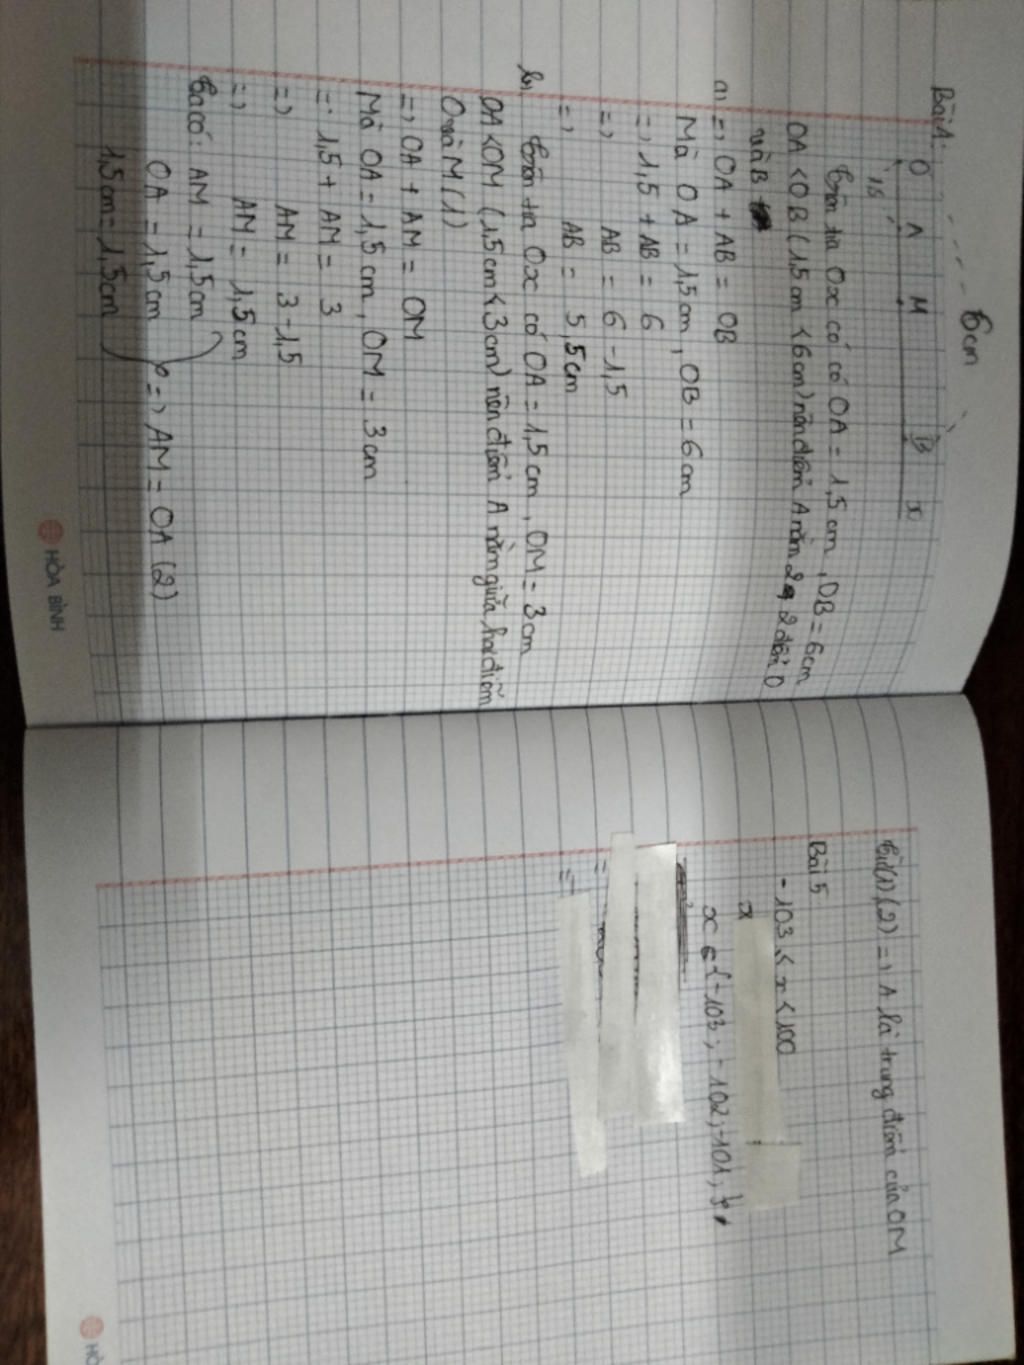 Bài 4:
6cm
O A M B x
1,5
Trên tia Ox có có OA = 1,5 cm, OB = 6cm
OA < OB (1,5 cm < 6cm) nên điểm A nằm 2 điểm O
và B
a, => OA + AB = OB
Mà OA = 1,5cm, OB = 6cm
=> 1,5 + AB = 6
=> AB = 6 - 1,5
=> AB = 5,5cm
b, Trên tia Ox có OA = 1,5 cm, OM = 3cm
OA < OM (1,5cm < 3cm) nên điểm A nằm giữa hai điểm
O và M (1)
=> OA + AM = OM
Mà OA = 1,5 cm, OM = 3cm
= 1,5 + AM = 3
=> AM = 3 - 1,5
=> AM = 1,5cm
Ta có: AM = 1,5cm
OA = 1,5cm } => AM = OA (2)
1,5cm = 1,5cm
HÒA BÌNH
Từ (1), (2) => A là trung điểm của OM
Bài 5
-103 < x < 100
x
x ∈ {-103; -102; -101; }
=
=
HÒ